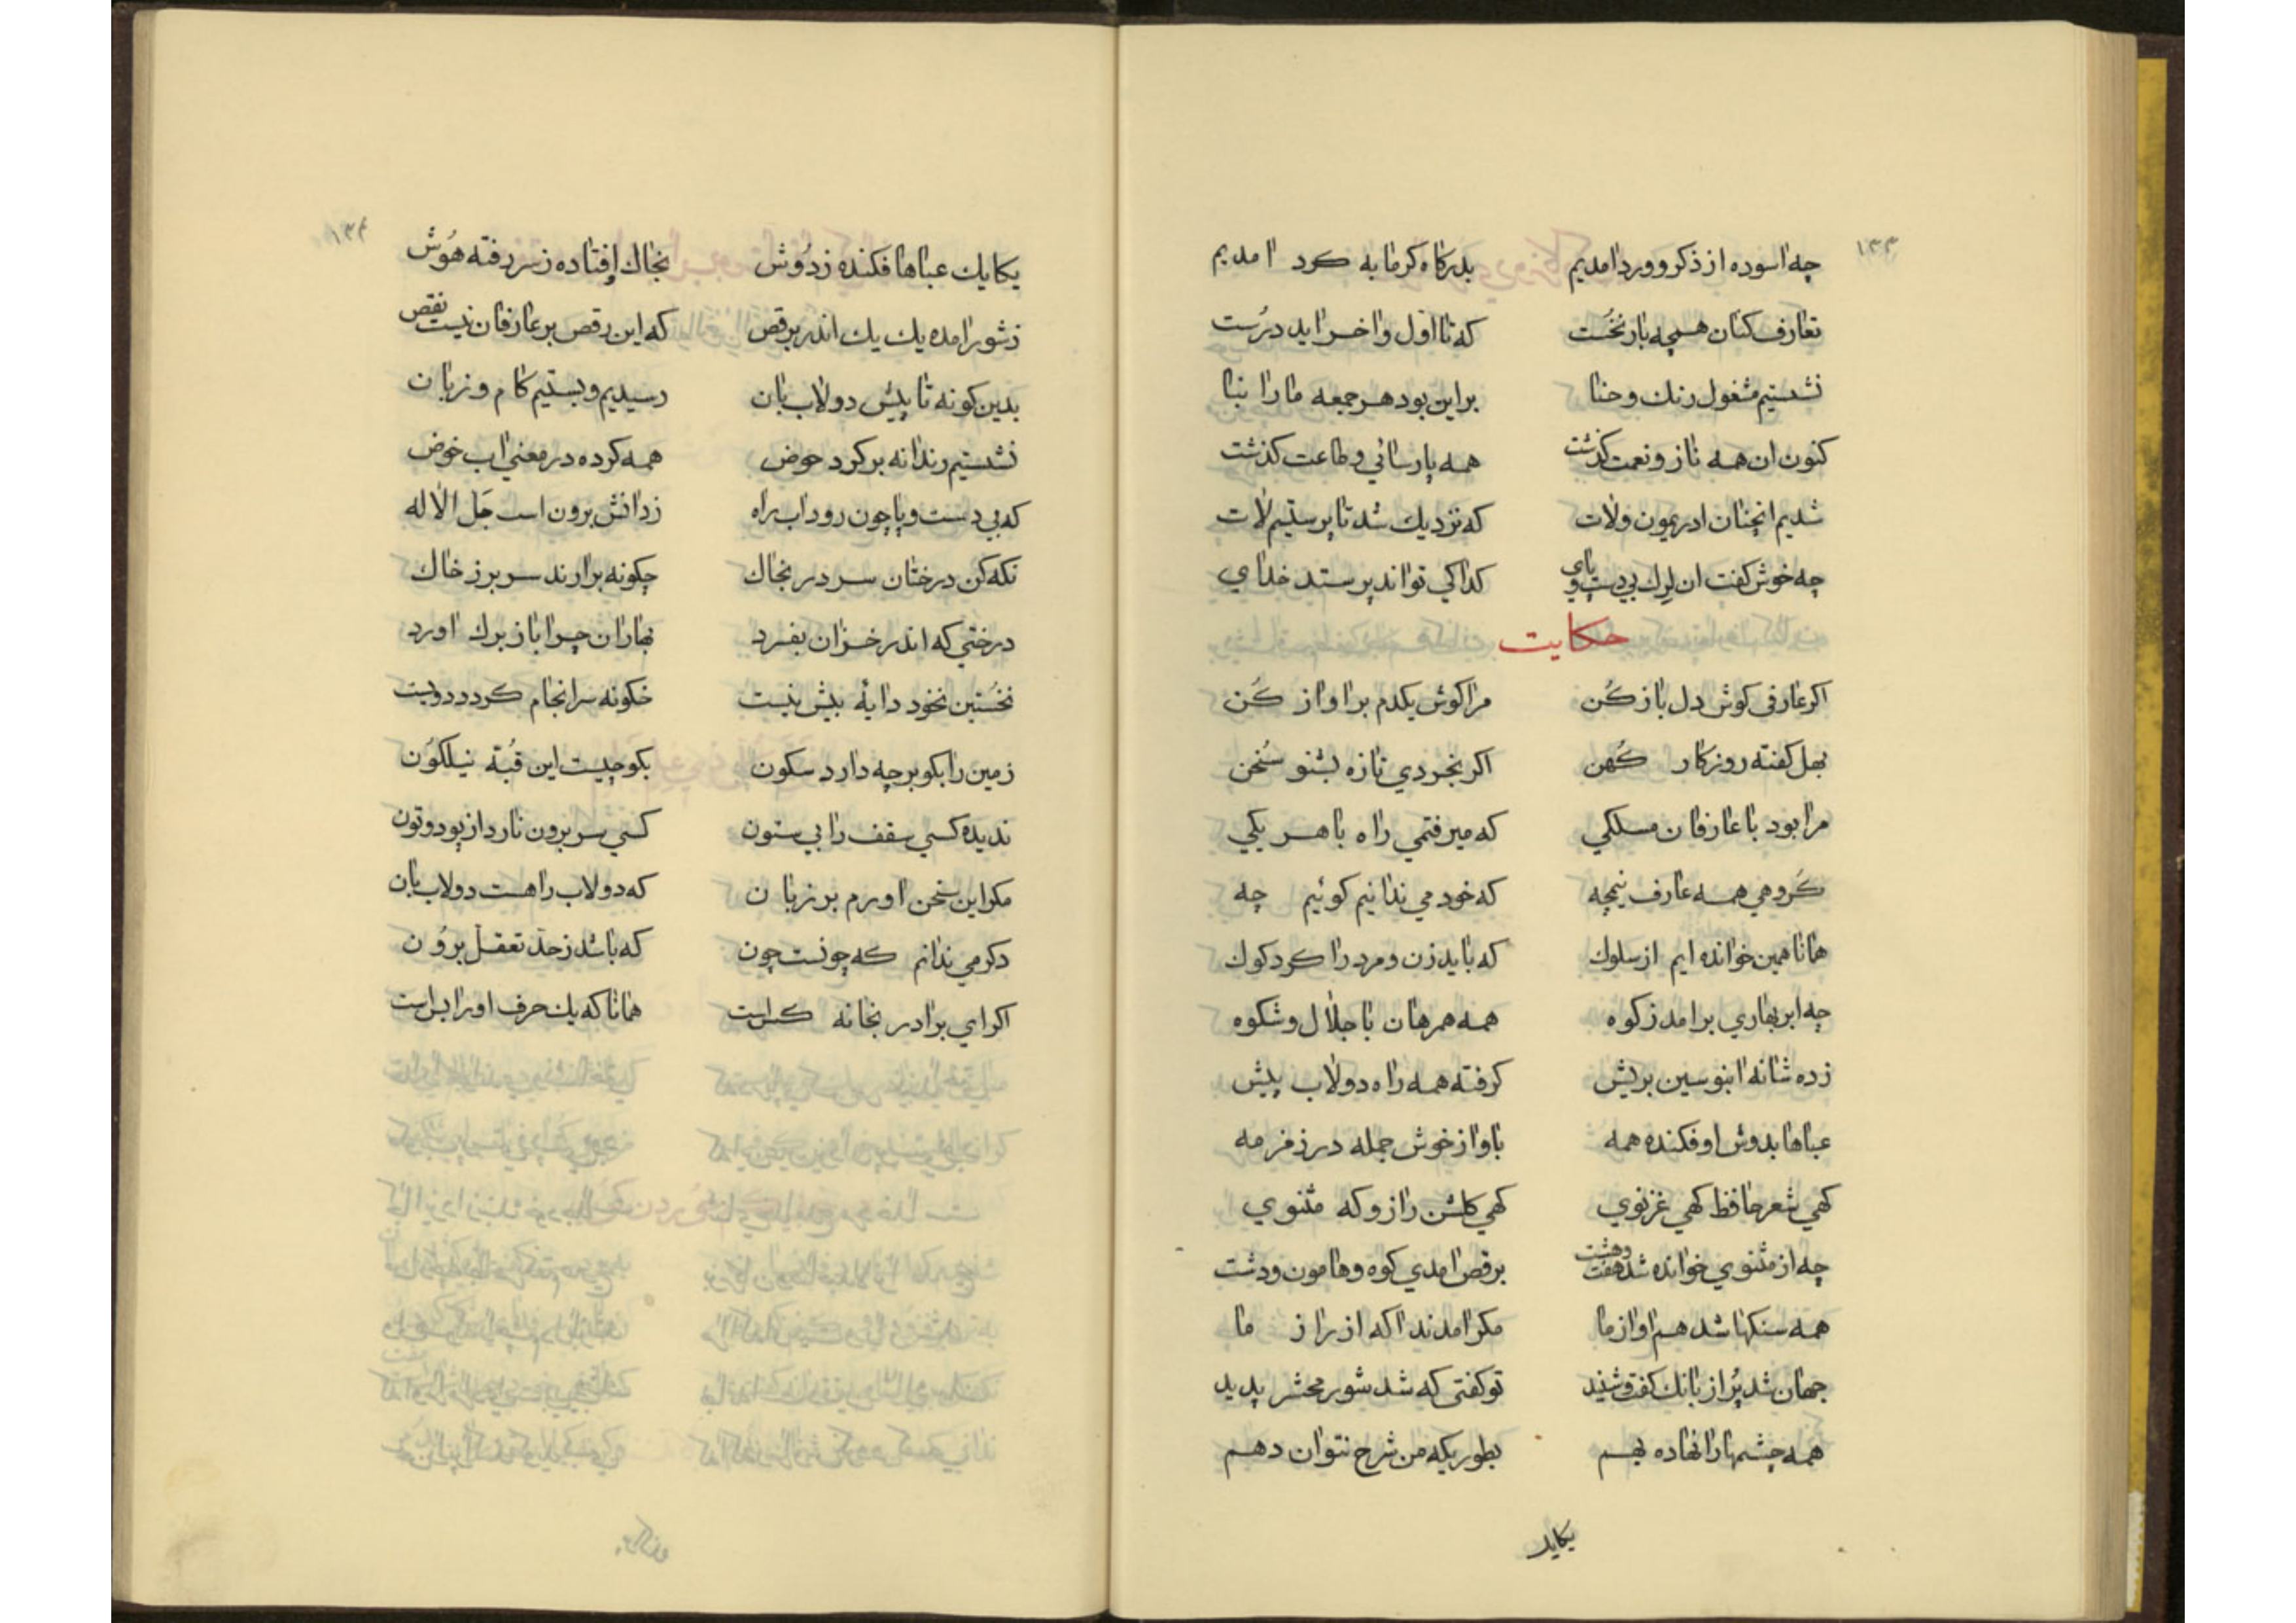 ۱۳۳
چه اسوده از ذکر و ورد امدیم بدرکاه کرمابه کرد امدیم
تعارف کنان همچه بار نخُست که تا اوّل و اخر اید درُست
نشستیم مشغول رنك و حنا بر این بود هر جمعه ما را بنا
کنون ان همه ناز و نعمت کذشت همه پارسائي و طاعت کذشت
شدیم انچنان ادریمون ولات که نزدیك شد تا پرستیم لات
چه خوش کفت ان لرك بي دست و پاي کدا کي تواند پرستد خداي
حکایت
اکر عارفی کوش دل باز کُن مرا کوش یکدم بر اواز کُن
بهل کفته روزکار کُهن اکر بخردي تازه بشنو سُخن
مرا بود با عارفان مسلکي که میرفتمي راه با هر یکي
کَروهي همه عارف نیچه که خود مي ندانیم کوئیم چه
همانا همین خوانده ایم از سلوك که باید زن و مرد را کرد کوك
چه ابر بهاري برامد ز کوه همه همرهان با جلال و شکوه
زده شانه ابنوسین بریش کرفته همه راه دولاب پیش
عباها بدوش اوفکنده همه باواز خوش جمله در زمزمه
کهي شعر حافظ کهي غزنوي کهي کلشن راز و که مثنوي
چه از مثنوي خوانده شد هفت و هشت برقص امدي کوه و هامون و دشت
همه سنکها شد هم اواز ما مکر امدند اکه از راز ما
جهان شد پُر از بانك کفت و شنید تو کفتی که شد شور محشر پدید
همه چشمها را نهاده بهم بطوریکه من شرح نتوان دهم
یکایك
۱۳۴
یکایك عباها فکنده زدُوش بخاك اِفتاده ز سر رفته هُوش
ز شور امده یك یك اندر برقص که این رقص بر عارفان نیست نقص
بدین کونه تا پیش دولاب بان رسیدیم و بستیم کام و زبان
نشستیم رندانه بر کرد حوض همه کرده در معني اب خوض
که بي دست و پا چون رود اب راه ز دانش برون است جَل الاله
نکه کن درختان سر در بخاك چکونه برارند سر بر ز خاك
درختي که اندر خزان بفسرد بهاران چرا باز برك اورد
نخستین نخود دایهٔ بیش نیست خکونه سر انجام کردد دویست
زمین را بکو بر چه دارد سکون بکو چیست این قبُهٔ نیلکوُن
ندیده کسي سقف را بي ستون کسي سر برون نارد از پود و تون
مکر این سخن اورم بر زبان که دولاب را هست دولاب بان
دکر مي ندانم که چونست چون که باشد ز حدّ تعقل برُون
اکر اي برادر بخانه کس است همانا که یك حرف اورا بس است